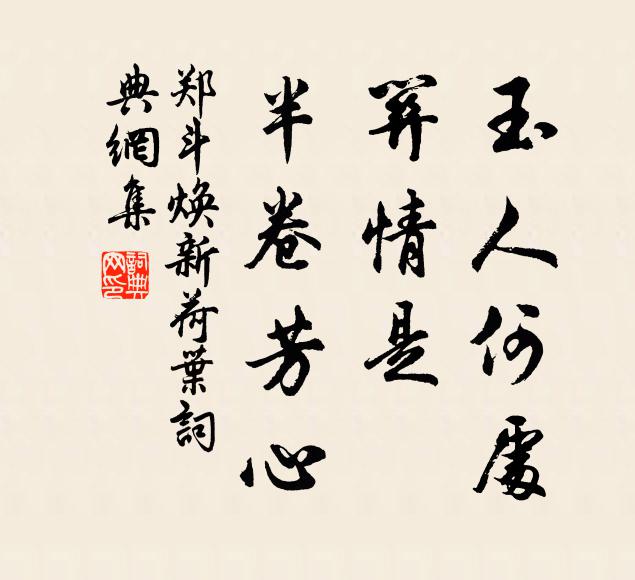 玉人何處
關情是
半卷芳心
郑斗焕新荷葉詞
典網集
詞典網印